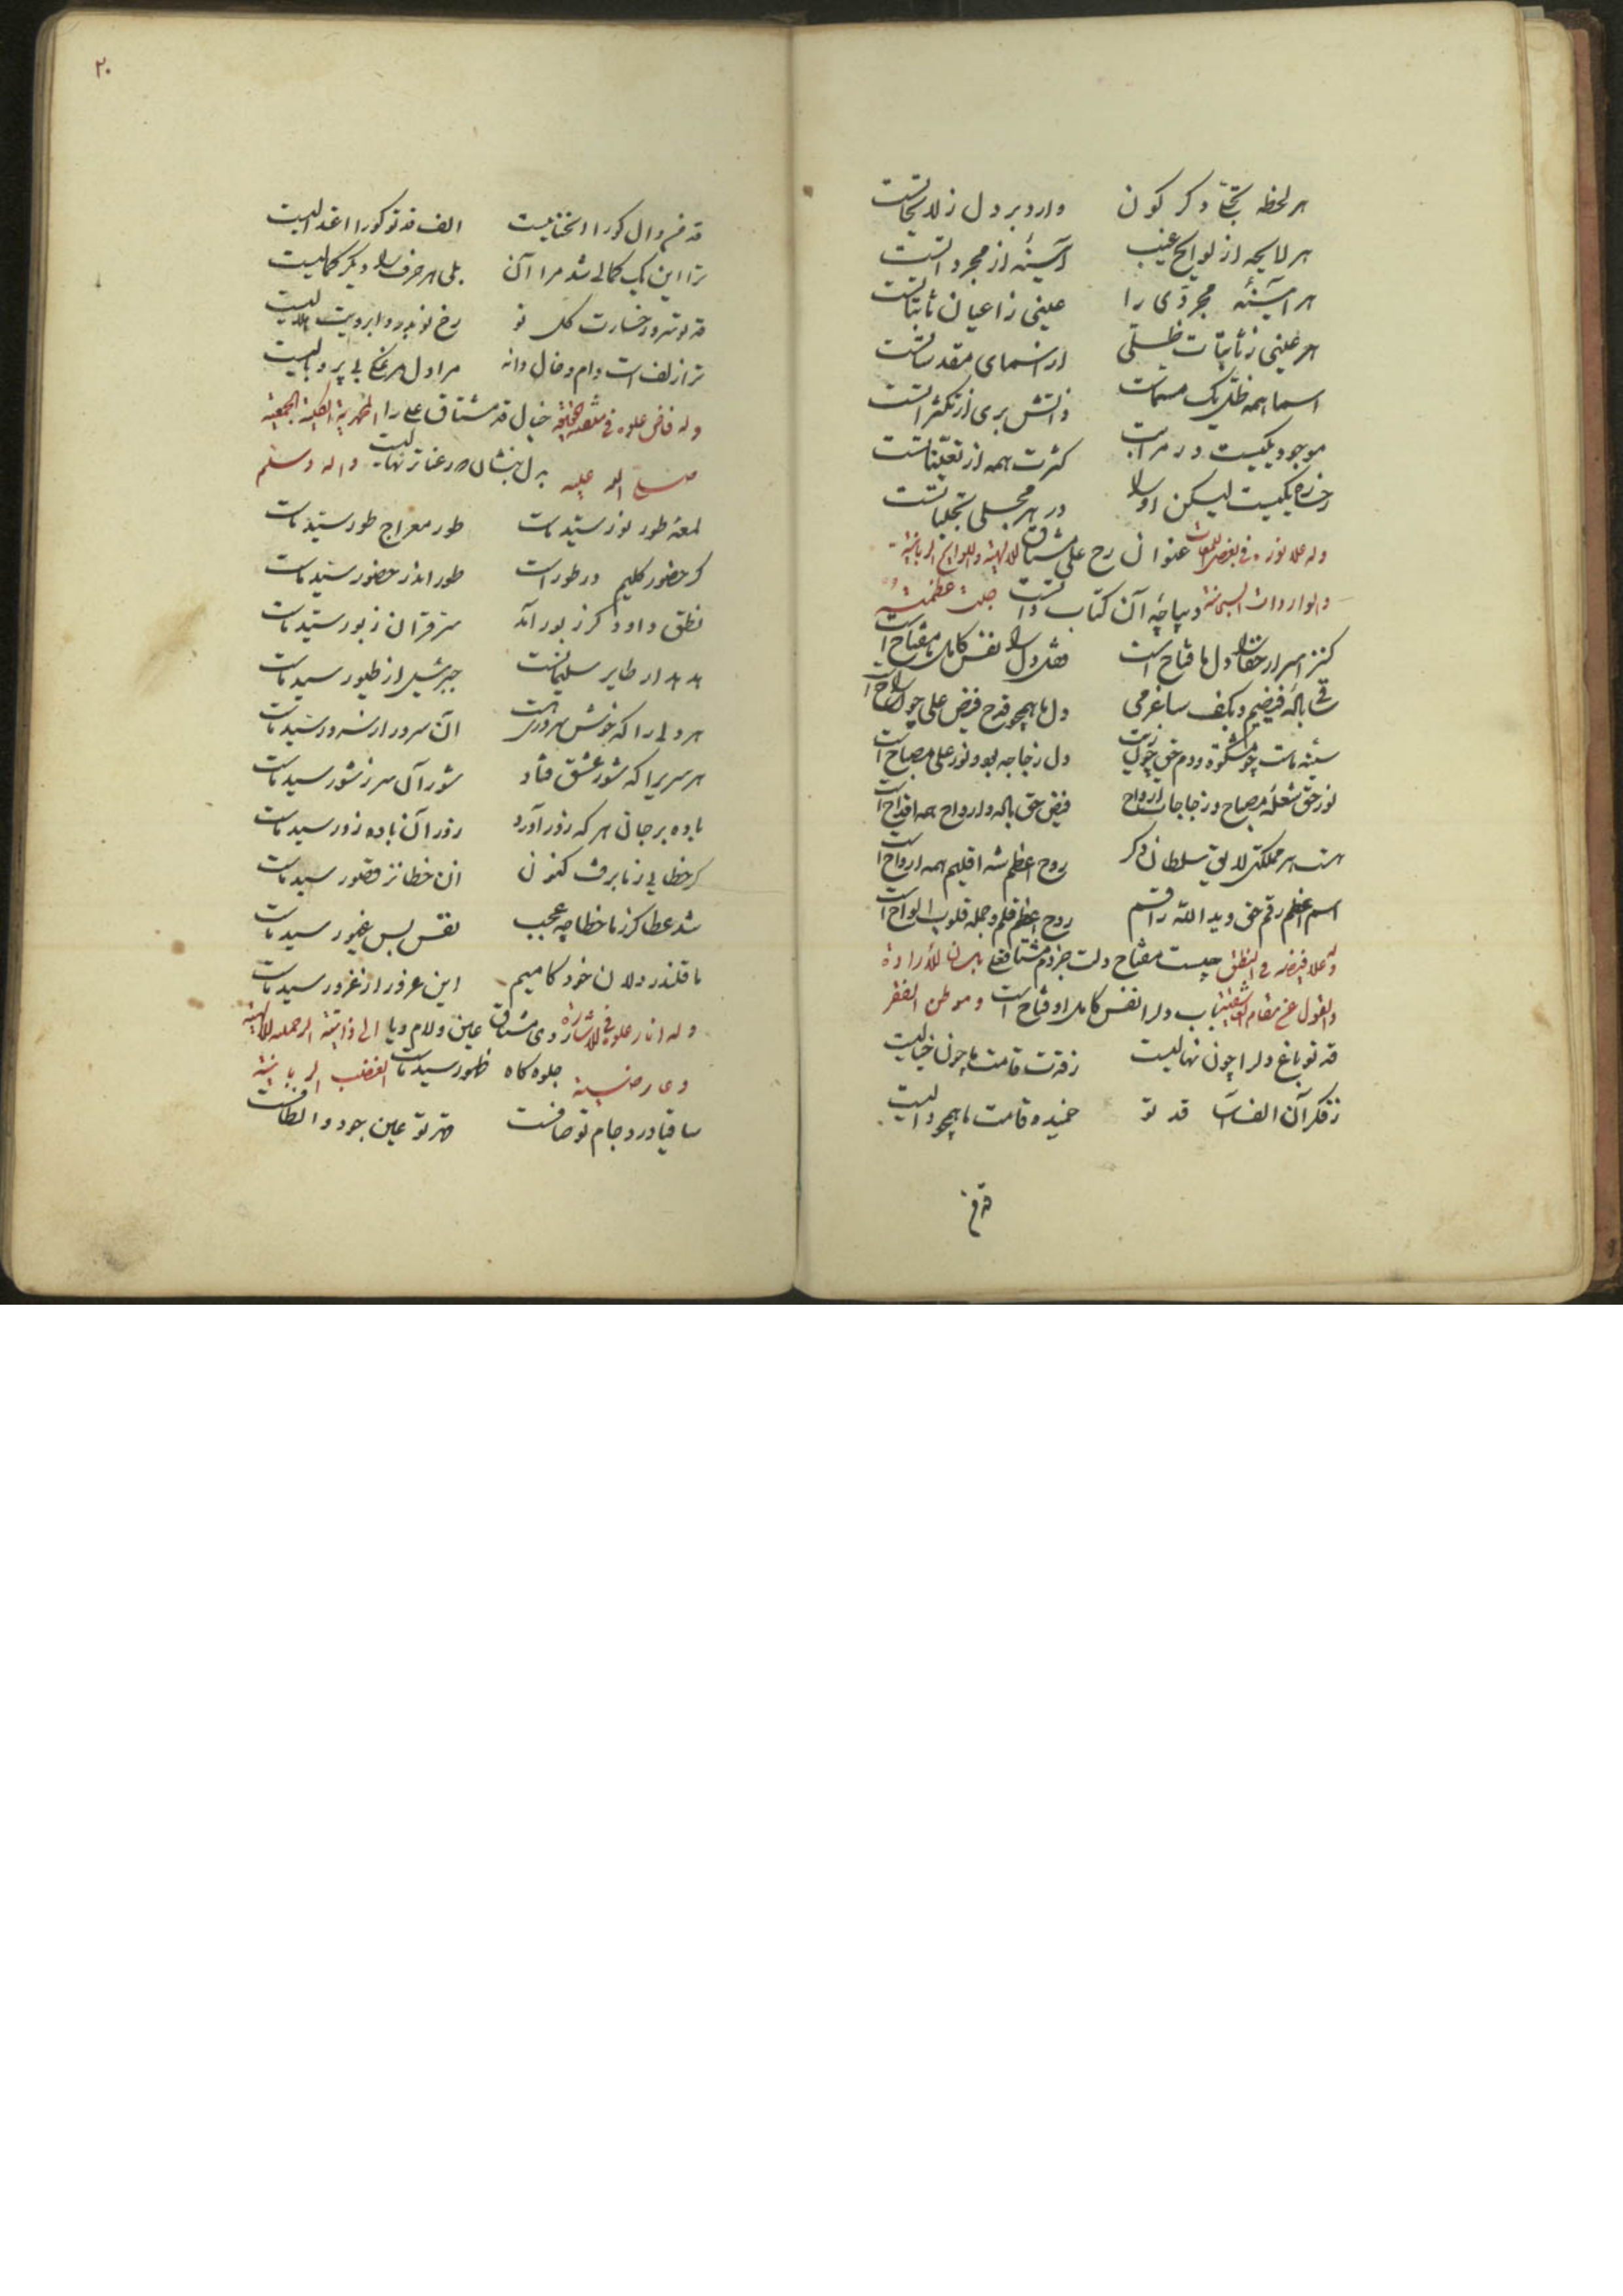 هر لحظه تجلّی دکر کون وارد بر دل ز لایحاتست
هر لایحه از لوایح غیب آیینهٔ از مجرداتست
هر آیینهٔ مجردی را عینی ز اعیان ثابتاتست
هر عینی ز ثابتات ظلّی از اسمای مقدساتست
اسما همه ظل یک مسمات ذاتش بری از تکثراتست
موجود یکیست در مراتب کثرت همه از تعیناتست
رخساره یکیست لیکن او را در هر مجلی تجلیاتست
وله علا نوره فی بعض اللمعات عنوان رخ علی مشتاق الالهیة واللوایح الربانیة
والواردات السبحانیة دیباچهٔ آن کتاب ذاتست جلت عظمته
کنز اسرار حقایق دل ما فتاح است قفل دل را نفس کامل ما مفتاح است
فیضیم و بکف ساغر می دل ما همچو قدح فیض علی چون راح است
سینه ماست چو مشکوة و دم حق چو زیت دل زجاجه بود و نور علی مصباح است
نور حق شعله مصباح و زجاجات ارواح فیض حق باده و ارواح همه اقداح است
هست هر مملکتی لایق سلطان دکر روح اعظم شه اقلیم همه ارواح است
اسم اعظم رقم حق و ید الله راقم روح اعظم قلم و جمله قلوب الواح است
وله علا فیضه فی النطق چیست مفتاح دلت جز دم مشتاق علی بلسان الارادة
والقول عن مقام باب دلرا نفس کامل او فتاح است وموطن الفقر
قد تو باغ دلرا چون نهالیست ز قدت قامت ما چون خیالیست
ز فکر آن الف قد تو خمیده قامت ما همچو دالیست
قد خم
۲۰
قد خم دال کورا انحنائیست الف قد تو کورا اعتدالیست
ترا این یک کمالی شد مرا آن بلی هر حرف را دیکر کمالیست
قد تو سرو رخسارت کل نو رخ تو بدر و ابرویت هلالیست
ترا زلف است دام و خال دانه مرا دل مرغکی بی پر و بالیست
وله فاض علوه فی خیال قد مشتاق علی را المظهریة الکلیة الجمعیة
صلی الله علیه بدل بنشان که رعنا تر نهالیست واله وسلم
لمعهٔ طور نور سید ماست طور معراج طور سید ماست
کر حضور کلیم در طور است طور اندر حضور سید ماست
نطق داود کر زبور آمد سر قرآن زبور سید ماست
هدهد ار طایر سلیمانست جبرئیل از طیور سید ماست
هر دلی را که خوش سروری هست آن سرور از سرور سید ماست
هر سریرا که شور عشق فتاد شور آن سر ز شور سید ماست
باده بر جان هر که زور آورد زور آن باده زور سید ماست
کر خطایی ز ما برفت کنون آن خطا نز قصور سید ماست
شد عطا کر ز ما خطا چه عجب نفس بس غیور سید ماست
ما قلندر دلان خود کامیم این غرور از غرور سید ماست
وله انار علوه فی الاشارة روی مشتاق عین و لام و یا الی ذاتیة الرحمة الالهیة
وعارضیة جلوه کاه ظهور سید ماست الغضب الربانیة
ساقیا درد جام تو صافست قهر تو عین جود و الطافست